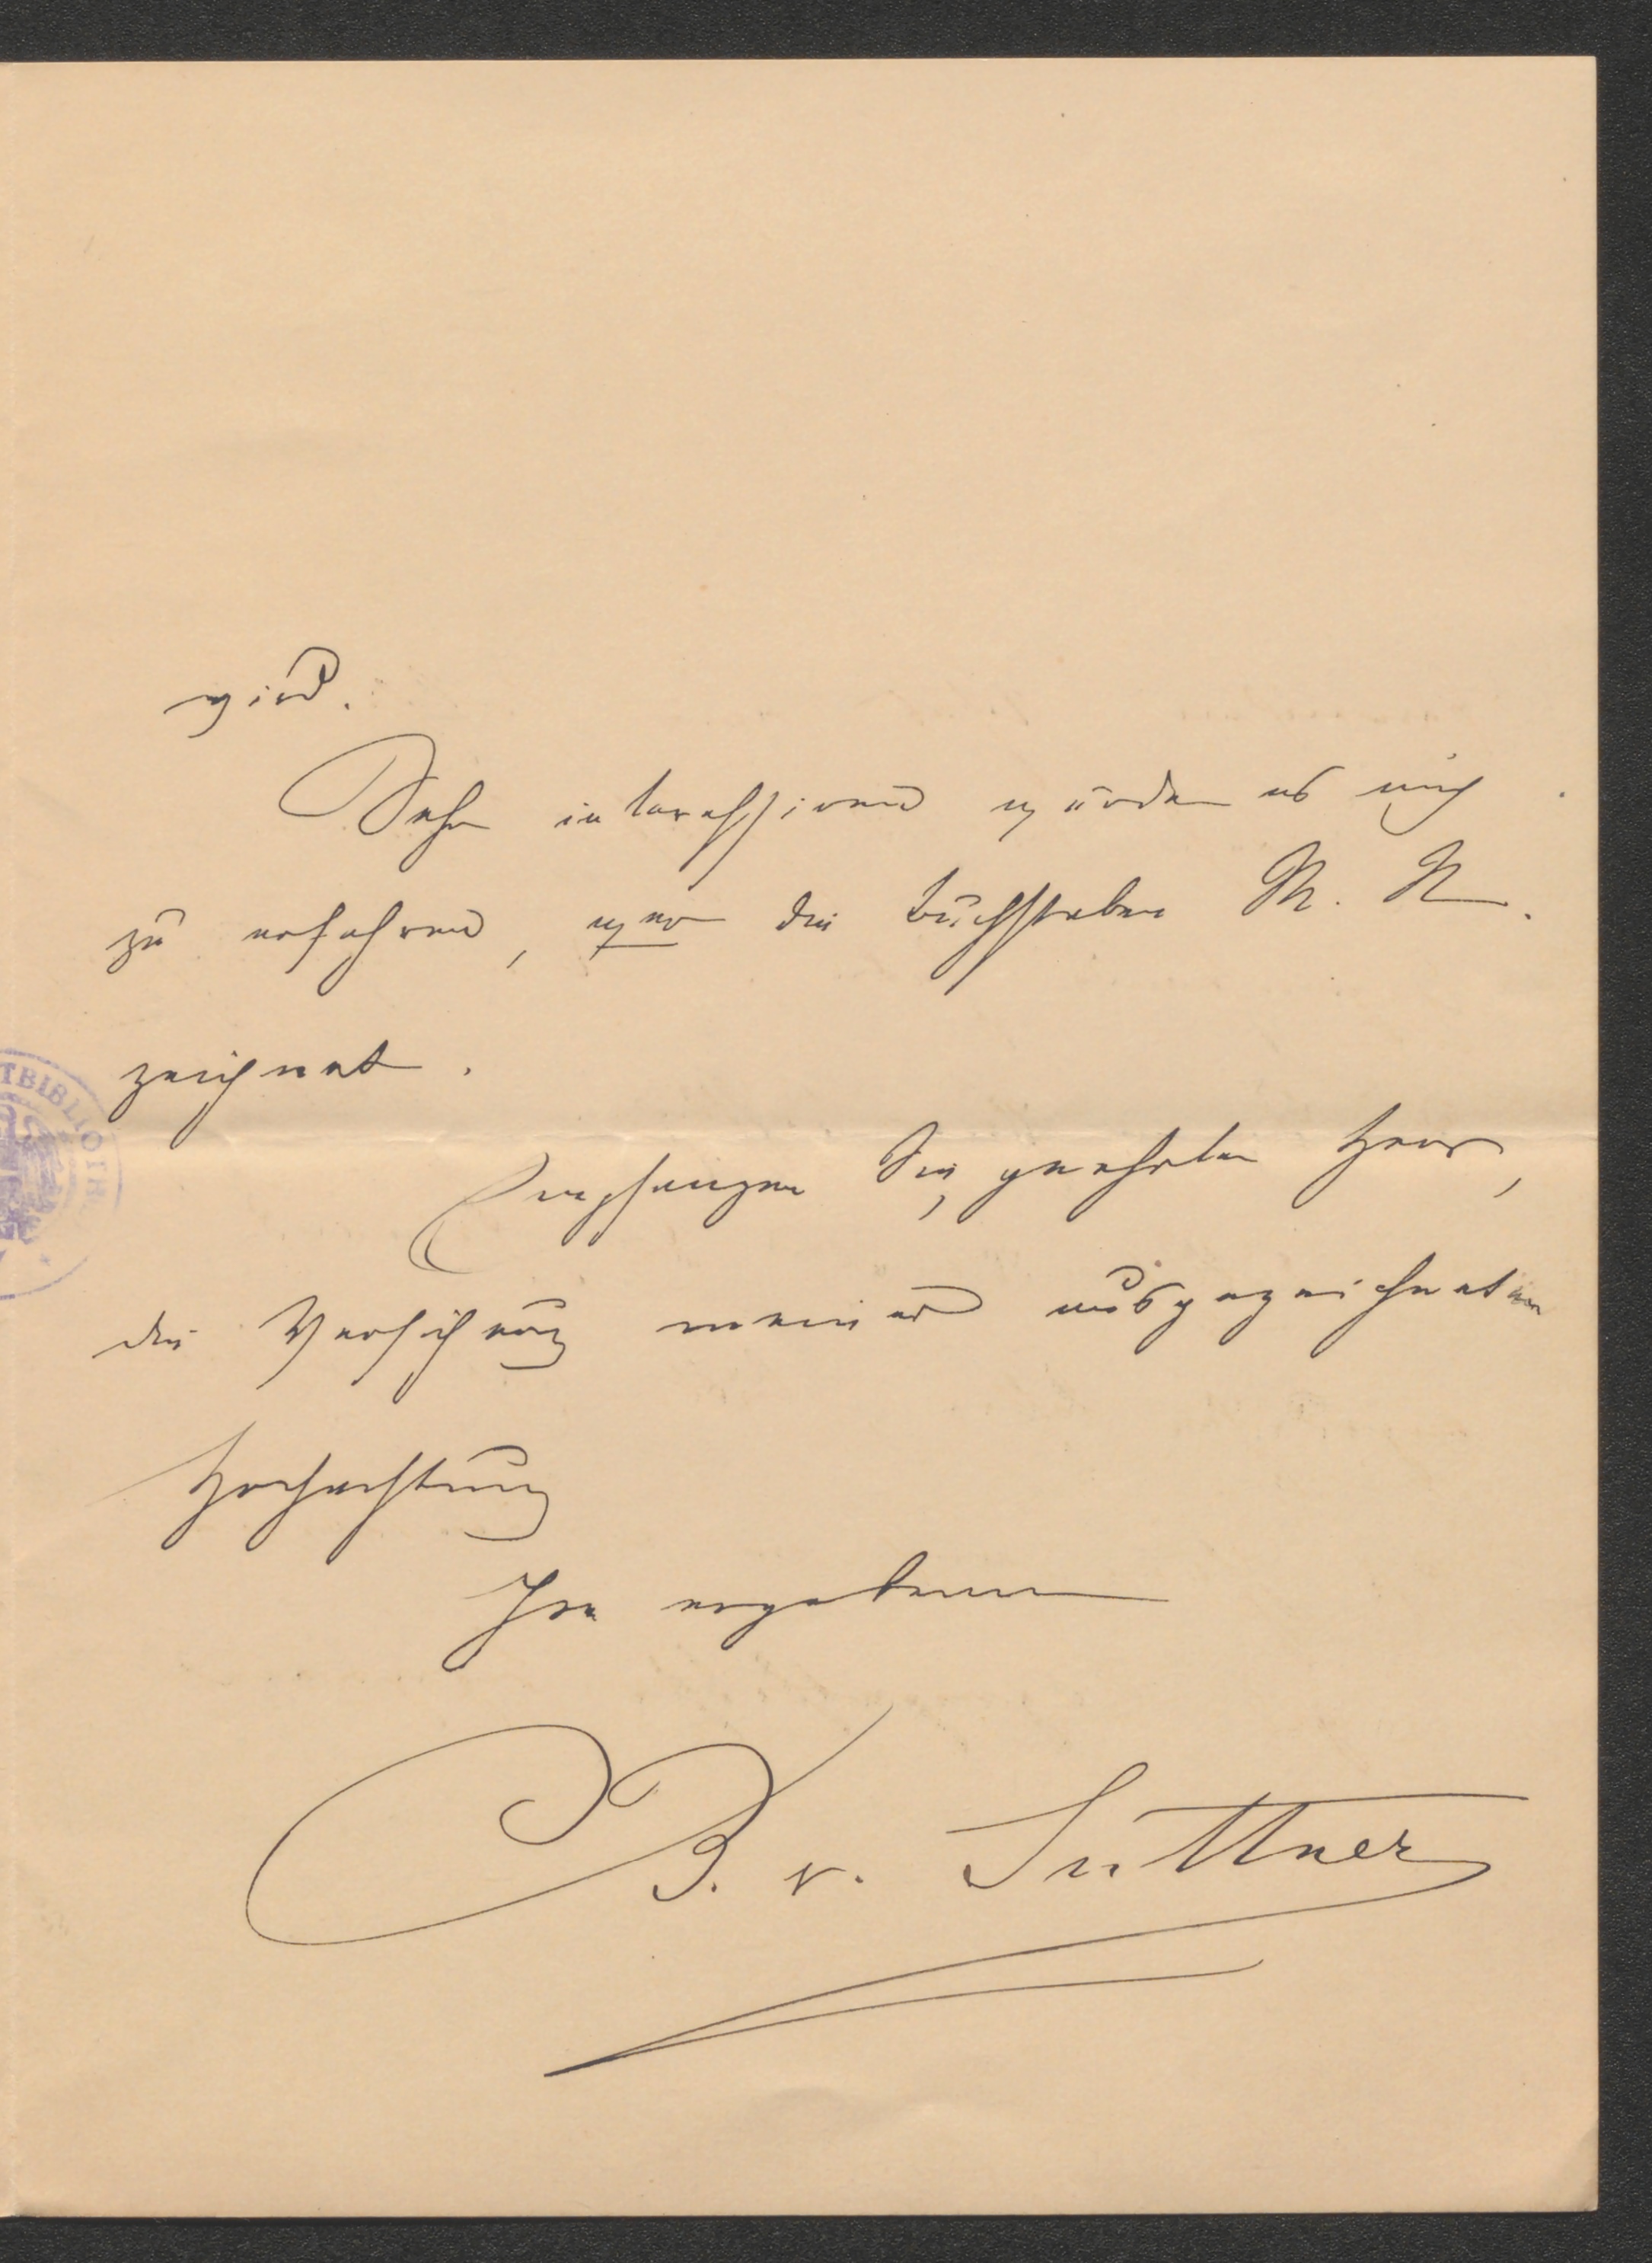 wird.
Sehr interessiren würde es mich
zu erfahren, wer die Buchstaben M. N.
zeichnet.
Empfangen Sie, geehrter Herr,
die Versicherung meiner ausgezeichneten
Hochachtung
Ihre ergebene
B. v. Suttner
TBIBLIOTH